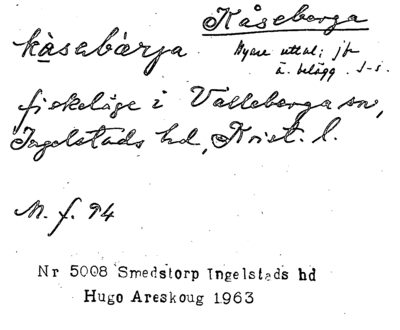 Kåseberga
kåsebärja
Nyare uttal; jfr
ä. belägg. J-s.
fiskeläge i Valleberga sn,
Ingelstads hd, Krist. l.
M. f. 94
Nr 5008 Smedstorp Ingelstads hd
Hugo Areskoug 1963